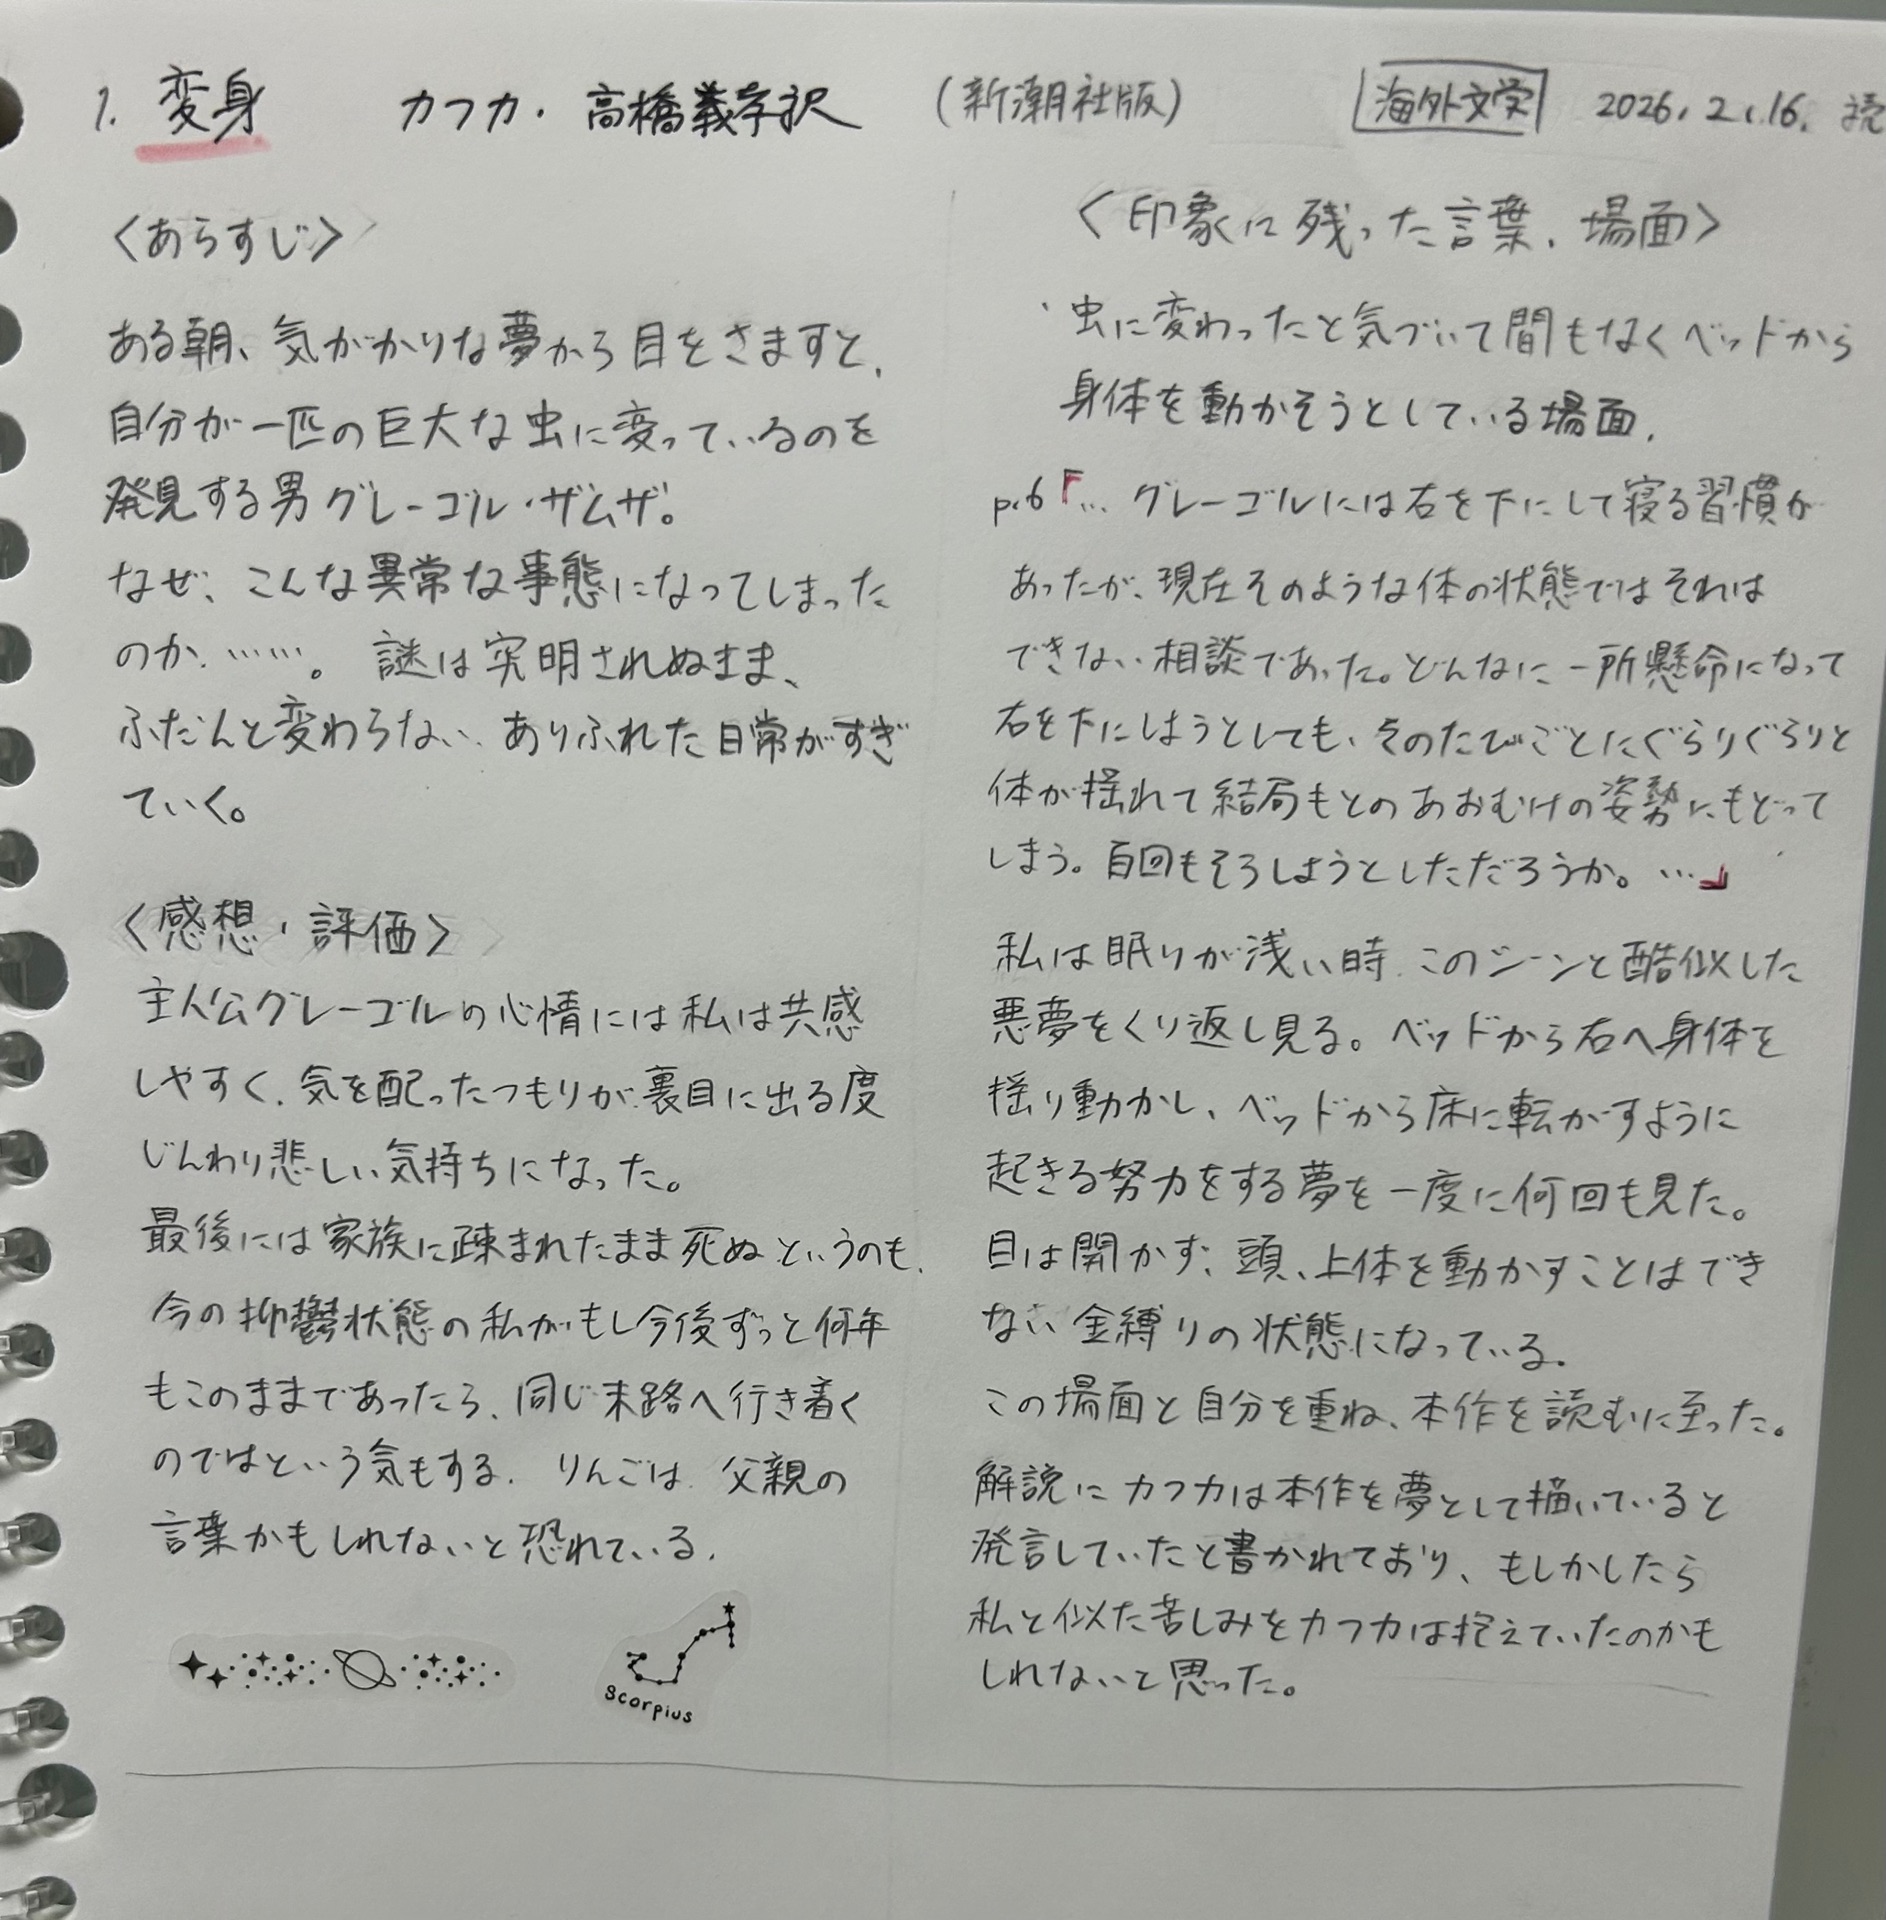 1. 変身 カフカ・高橋義孝訳 (新潮社版) 海外文学 2026. 2.16. 読
〈あらすじ〉
ある朝、気がかりな夢から目をさますと、
自分が一匹の巨大な虫に変っているのを
発見する男グレーゴル・ザムザ。
なぜ、こんな異常な事態になってしまった
のか……。謎は究明されぬまま、
ふだんと変わらない、ありふれた日常がすぎ
ていく。
〈感想・評価〉
主人公グレーゴルの心情には私は共感
しやすく、気を配ったつもりが裏目に出る度
じんわり悲しい気持ちになった。
最後には家族に疎まれたまま死ぬというのも、
今の抑鬱状態の私がもし今後ずっと何年
もこのままであったら、同じ末路へ行き着く
のではという気もする。りんごは、父親の
言葉かもしれないと恐れている。
Scorpius
〈印象に残った言葉、場面〉
・虫に変わったと気づいて間もなくベッドから
身体を動かそうとしている場面。
p.6「… グレーゴルには右を下にして寝る習慣が
あったが、現在そのような体の状態ではそれは
できない相談であった。どんなに一所懸命になって
右を下にしようとしても、そのたびごとにぐらりぐらりと
体が揺れて結局もとのあおむけの姿勢にもどって
しまう。百回もそうしようとしただろうか。…」
私は眠りが浅い時、このシーンと酷似した
悪夢をくり返し見る。ベッドから右へ身体を
揺り動かし、ベッドから床に転がすように
起きる努力をする夢を一度に何回も見た。
目は開かず、頭、上体を動かすことはでき
ない金縛りの状態になっている。
この場面と自分を重ね、本作を読むに至った。
解説にカフカは本作を夢として描いていると
発言していたと書かれており、もしかしたら
私と似た苦しみをカフカは抱えていたのかも
しれないと思った。